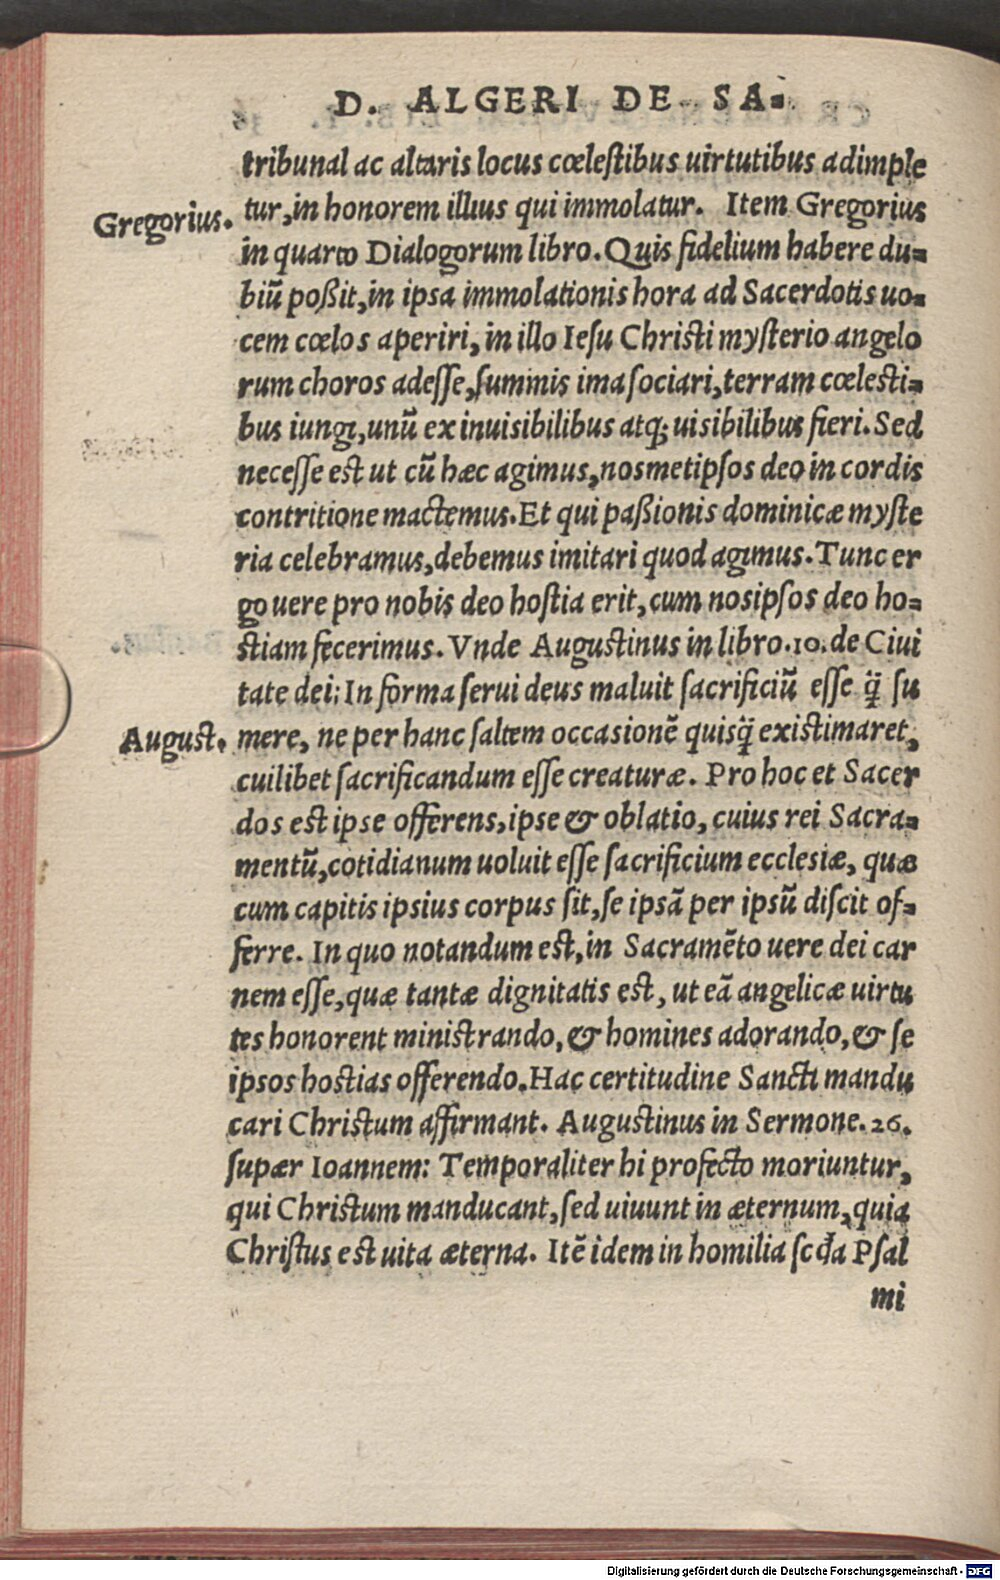 D. ALGERI DE SA-
tribunal ac altaris locus cœleſtibus uirtutibus adimple
Gregorius. tur, in honorem illius qui immolatur. Item Gregorius
in quarto Dialogorum libro. Quis fidelium habere du-
biū poßit, in ipsa immolationis hora ad Sacerdotis uo-
cem cœlos aperiri, in illo Ieſu Chriſti myſterio angelo
rum choros adeſſe, ſummis ima ſociari, terram cœleſti-
bus iungi, unū ex inuisibilibus atq; uisibilibus fieri. Sed
neceſſe eſt ut cū hæc agimus, nosmetipſos deo in cordis
contritione mactemus. Et qui paßionis dominicæ myſte
ria celebramus, debemus imitari quod agimus. Tunc er
go uere pro nobis deo hoſtia erit, cum nosipſos deo ho-
ſtiam fecerimus. Vnde Auguſtinus in libro. 10. de Ciui
tate dei: In forma ſerui deus maluit ſacrificiū eſſe q̄̈ ſu
Auguſt. mere, ne per hanc ſaltem occasionē quisq̄̈ existimaret,
cuilibet ſacrificandum eſſe creaturæ. Pro hoc et Sacer
dos eſt ipse offerens, ipse & oblatio, cuius rei Sacra-
mentū, cotidianum uoluit eſſe ſacrificium ecclesiæ, quæ
cum capitis ipsius corpus ſit, ſe ipsā per ipsū diſcit of-
ferre. In quo notandum eſt, in Sacramēto uere dei car
nem eſſe, quæ tantæ dignitatis eſt, ut eā angelicæ uirtu
tes honorent miniſtrando, & homines adorando, & ſe
ipsos hoſtias offerendo. Hac certitudine Sancti mandu
cari Chriſtum affirmant. Auguſtinus in Sermone. 26.
ſupær Ioannem: Temporaliter hi profecto moriuntur,
qui Chriſtum manducant, ſed uiuunt in æternum, quia
Chriſtus eſt uita æterna. Itē idem in homilia ſcđa Pſal
mi
Digitalisierung gefördert durch die Deutsche Forschungsgemeinschaft - DFG